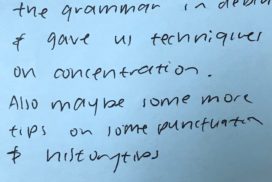 the grammar in
& gave us techniques
on concentration.
Also maybe some more
tips on some punctuation
&